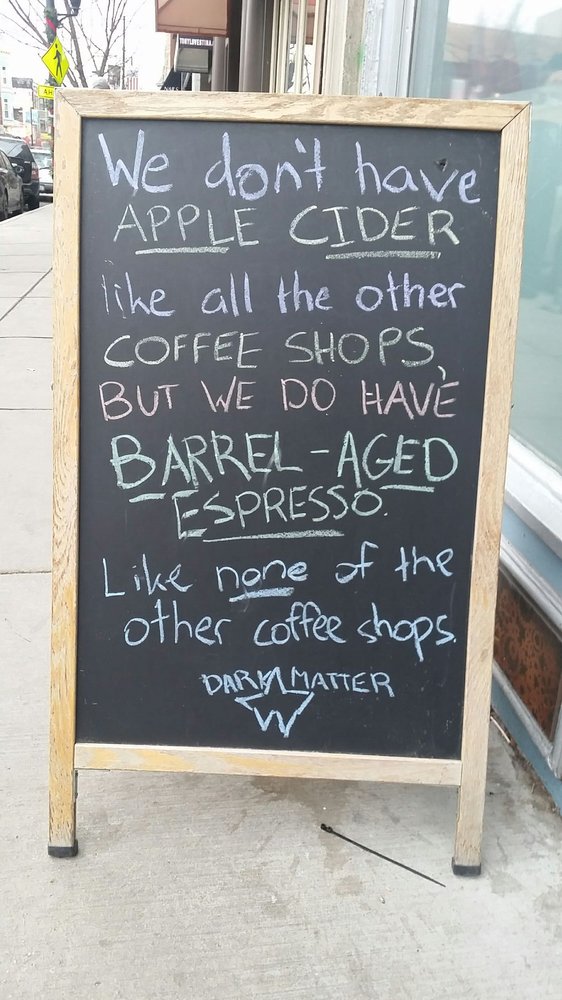 We don't have
APPLE CIDER
like all the other
COFFEE SHOPS,
BUT WE DO HAVE
BARREL-AGED
ESPRESSO.
Like none of the
other coffee shops.
DARK MATTER